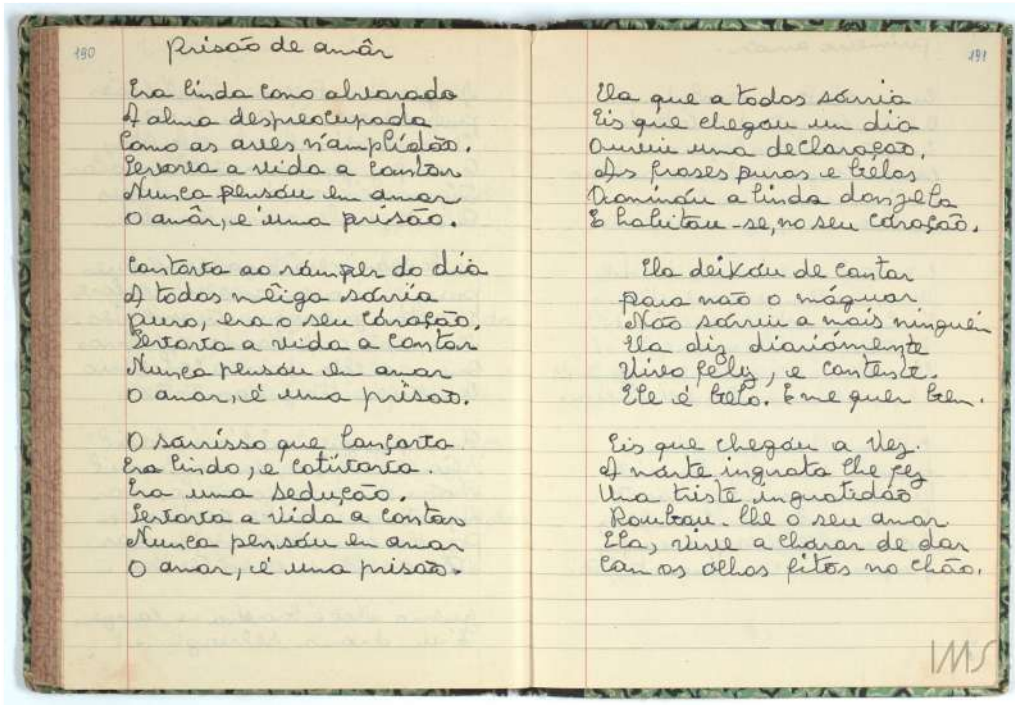 190
Prisão de amôr
Era linda como alvorada
A alma despreocupada
Como as aves n'amplidão.
Levava a vida a cantar
Nunca pensóu em amar
O amôr, é uma prisão.
Cantava ao rômper do dia
A todos mêiga sórria
puro, era o seu córação.
Levava a vida a cantar
Nunca pensóu em amar
O amor, é uma prisão.
O sorrisso que lançava
Era lindo, e cativava.
Era uma sedução.
Levava a vida a cantar
Nunca pensóu em amar
O amor, é uma prisão.
191
Ela que a todos sórria
Eis que chegou um dia
Ouviu uma declaração.
As frases puras e bélas
Dominóu a linda donzela
E habitou-se, no seu coração.
Ela deixóu de cantar
para não o máguar
Não sórriu a mais ninguém
Ela diz diáriamente
Vivo feliz, e contente.
Ele é belo. E me quer bem.
Eis que chegóu a vez.
A morte ingrata lhe fez
Uma triste ingratidão
Roubou-lhe o seu amor
Ela, vive a chorar de dor
Com os olhos fitos no chão.
IMS